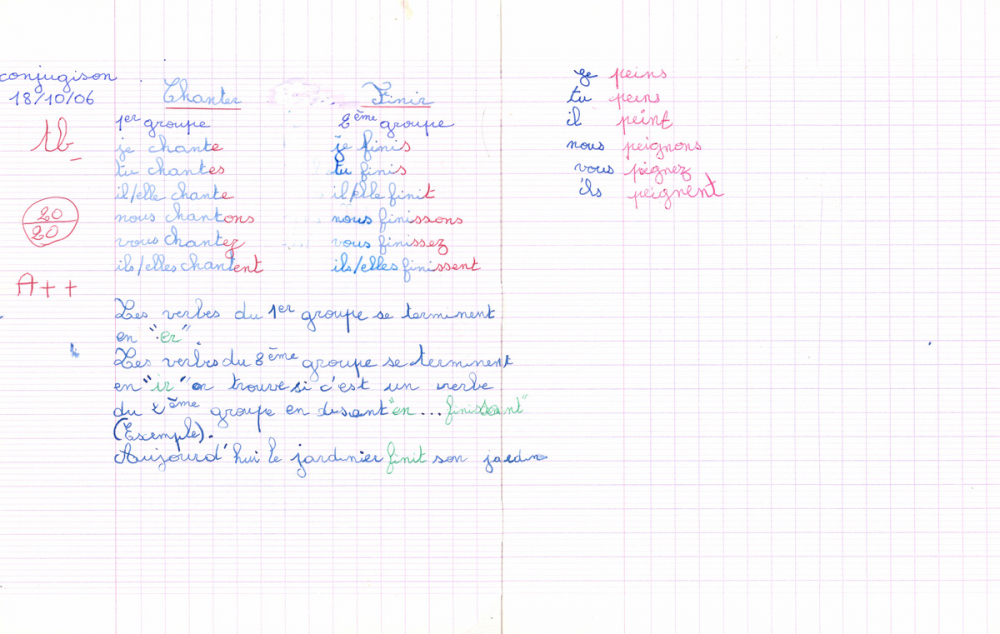 conjugison
18/10/06
tb
20/20
A++
Chanter Finir
1er groupe 2ème groupe
je chante je finis
tu chantes tu finis
il/elle chante il/elle finit
nous chantons nous finissons
vous chantez vous finissez
ils/elles chantent ils/elles finissent
Les verbes du 1er groupe se terminent
en "er".
Les verbes du 2ème groupe se terminent
en "ir" on trouve si c'est un verbe
du 2ème groupe en disant "en ... finissant"
(Exemple).
Aujourd'hui le jardinier finit son jardin
je peins
tu peins
il peint
nous peignons
vous peignez
ils peignent